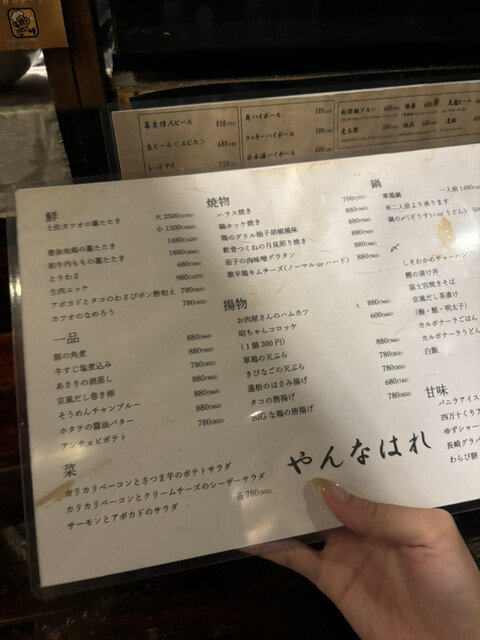 幕末浪人ビール 850
生ビール<エビス> 680
レッドアイ 750
角ハイボール 580
ラッキーハイボール
日本酒ハイボール
鮮
土佐カツオの藁たたき 大 2500(2750)
小 1500(1650)
雲仙地鶏の藁たたき 1480
和牛内ももの藁たたき 1880(2068)
とりわさ 680(748)
生肉ユッケ 980(1078)
アボカドとタコのわさびポン酢和え 780(858)
カツオのなめろう 780(858)
一品
豚の角煮 880(968)
牛すじ塩煮込み 880(968)
あさりの酒蒸し 780(858)
京風だし巻き卵 880(968)
そうめんチャンプルー 880(968)
ホタテの醤油バター 880(968)
アンチョビポテト 780(858)
菜
カリカリベーコンとさつま芋のポテトサラダ
カリカリベーコンとクリームチーズのシーザーサラダ
サーモンとアボカドのサラダ 各780(858)
焼物
ハラス焼き 700(770)
縞ホッケ焼き 880(968)
鶏のグリル柚子胡椒風味 880(968)
軟骨つくねの月見照り焼き 880(968)
茄子の肉味噌グラタン 880(968)
激辛鶏キムチーズ(ノーマル or ハード) 880(968)
揚物
お肉屋さんのハムカツ 880(968)
昭ちゃんコロッケ 600(660)
(1個300円)
軍鶏の天ぷら 880(968)
きびなごの天ぷら 780(858)
蓮根のはさみ揚げ 780(858)
タコの唐揚げ 680(748)
BIGな鶏の唐揚げ 780(858)
鍋
軍鶏鍋 一人前 1480
※二人前より承ります
鍋の〆(ぞうすい or うどん)
〆
しそわかめチャーハン
鯛の漬け丼
富士宮焼きそば
京風だし茶漬け
(梅・鮭・明太子)
カルボナーラごはん
カルボナーラうどん
白飯
甘味
バニラアイス
四万十くりア
ゆずシャー
長崎グラバ
わらび餅
やんなはれ